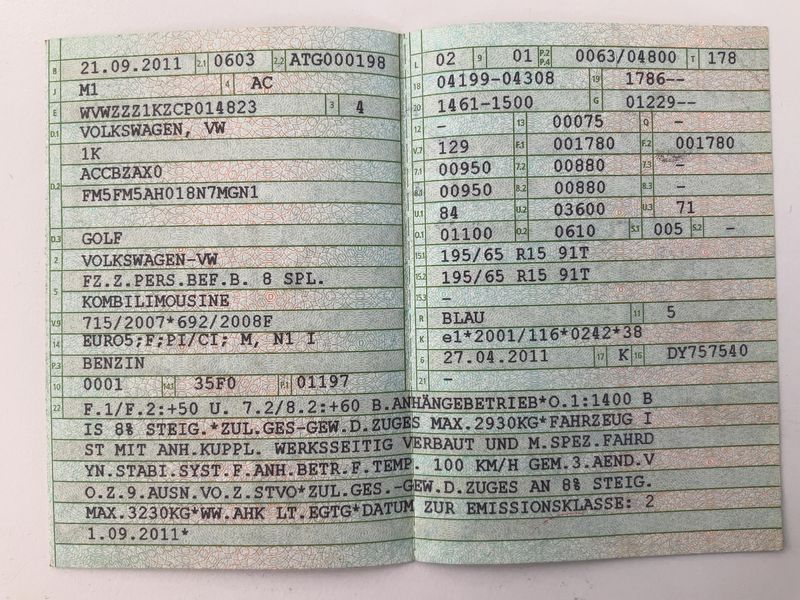 B 21.09.2011 2.1 0603 2.2 ATG000198
J M1 4 AC
E WVWZZZ1KZCP014823 3 4
D.1 VOLKSWAGEN, VW
1K
D.2 ACCBZAX0
FM5FM5AH018N7MGN1
D.3 GOLF
2 VOLKSWAGEN-VW
5 FZ.Z.PERS.BEF.B. 8 SPL.
KOMBILIMOUSINE
V.9 715/2007*692/2008F
14 EURO5;F;PI/CI; M, N1 I
P.3 BENZIN
10 0001 14.1 35F0 P.1 01197
L 02 9 01 P.2 P.4 0063/04800 T 178
18 04199-04308 19 1786--
20 1461-1500 G 01229--
12 - 13 00075 Q -
V.7 129 F.1 001780 F.2 001780
7.1 00950 7.2 00880 7.3 -
8.1 00950 8.2 00880 8.3 -
U.1 84 U.2 03600 U.3 71
O.1 01100 O.2 0610 S.1 005 S.2 -
15.1 195/65 R15 91T
15.2 195/65 R15 91T
15.3 -
R BLAU 11 5
K e1*2001/116*0242*38
6 27.04.2011 17 K 16 DY757540
21 -
22 F.1/F.2:+50 U. 7.2/8.2:+60 B.ANHÄNGEBETRIEB*O.1:1400 B
IS 8% STEIG.*ZUL.GES-GEW.D.ZUGES MAX.2930KG*FAHRZEUG I
ST MIT ANH.KUPPL. WERKSSEITIG VERBAUT UND M.SPEZ.FAHRD
YN.STABI.SYST.F.ANH.BETR.F.TEMP. 100 KM/H GEM.3.AEND.V
O.Z.9.AUSN.VO.Z.STVO*ZUL.GES.-GEW.D.ZUGES AN 8% STEIG.
MAX.3230KG*WW.AHK LT.EGTG*DATUM ZUR EMISSIONSKLASSE: 2
1.09.2011*